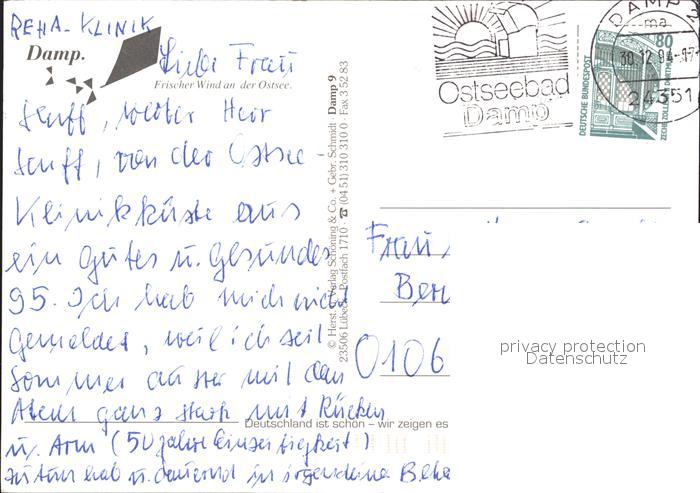 REHA-KLINIK
Damp.
Frischer Wind an der Ostsee.
Liebe Frau
Senff, werter Herr
Senff, von der Ostsee-
Klinikküste aus
ein gutes u. gesundes
95. Ich hab mich nicht
gemeldet, weil ich seit
Sommer außer mit dem
Atem ganz stark mit Rücken
u. Arm (50 Jahre Einseitigkeit)
zu tun hab u. dauernd in irgendeine
© Herst. Verlag Schöning & Co. + Gebr. Schmidt · Damp 9
23506 Lübeck · Postfach 1710 · ☎ (04 51) 310 310 0 · Fax 3 52 83
Deutschland ist schön – wir zeigen es
Ostseebad
Damp
DEUTSCHE BUNDESPOST
80
DAMP
ma
30.12.94-17
24351
Frau
0106
privacy protection
Datenschutz